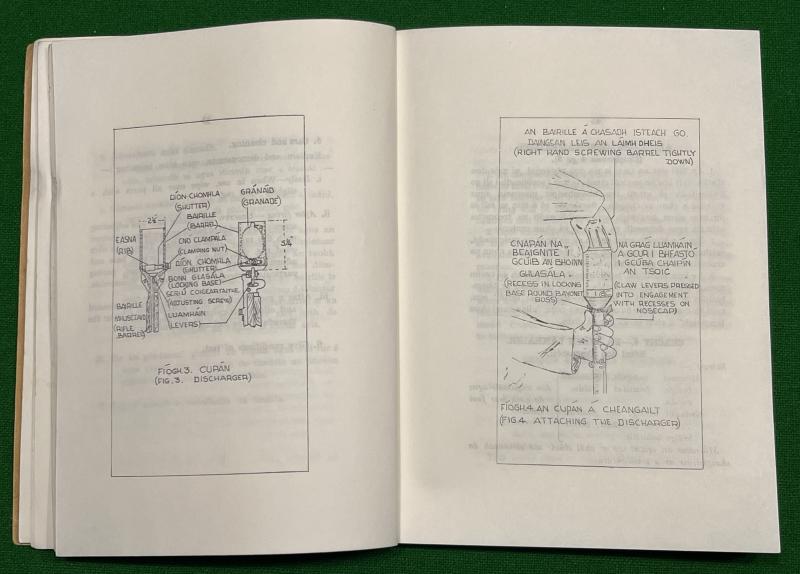 GRÁNÁID
(GRANADE)
DÍON-CHOMHLA
(SHUTTER)
BAIRILLE
(BARREL)
2½"
EASNA
(RIB)
CNO CLAMPALA
(CLAMPING NUT)
3¼"
DÍON CHOMHLA
(SHUTTER)
BONN GLASÁLA
(LOCKING BASE)
SCRIÚ
(ADJUSTING SCREW)
BAIRILLE
(RIFLE
BARREL)
LUAMHAIN
(LEVERS)
FÍOGH.3. CUPÁN
(FIG.3. DISCHARGER)
AN BAIRILLE Á CHASADH ISTEACH GO
DAINGEAN LEIS AN LÁIMH DHEIS
(RIGHT HAND SCREWING BARREL TIGHTLY
DOWN)
CNAPÁN NA
BEAIGNITE I
GCUIB AN BHOINN
GHLASÁLA
(RECESS IN LOCKING
BASE ROUND BAYONET
BOSS)
NA GRÁG LUAMHÁIN
Á GCUR I BHFASTÓ
I GCÚBA CHAIPÍN
AN TSOIC
(CLAW LEVERS PRESSED
INTO ENGAGEMENT
WITH RECESSES ON
NOSECAP)
FÍOGH.4. AN CUPÁN Á CHEANGAILT
(FIG.4. ATTACHING THE DISCHARGER)